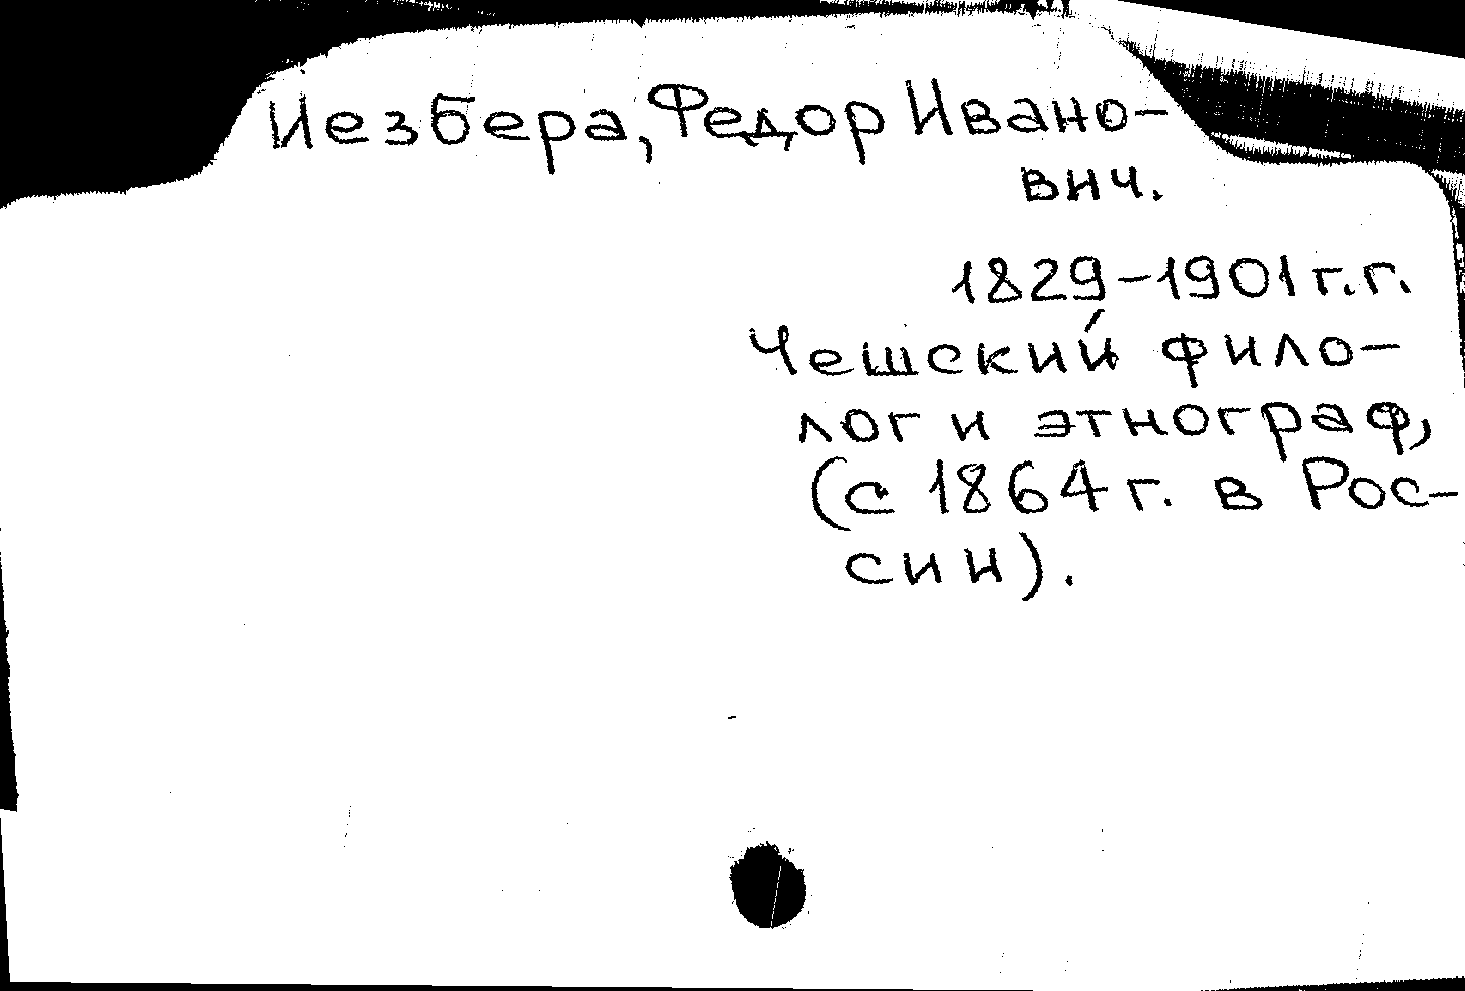 Иезбера, Федор Ивано-
вич.
1829-1901 г.г.
Чешский фило-
лог и этнограф,
(с 1864 г. в Рос-
сии).